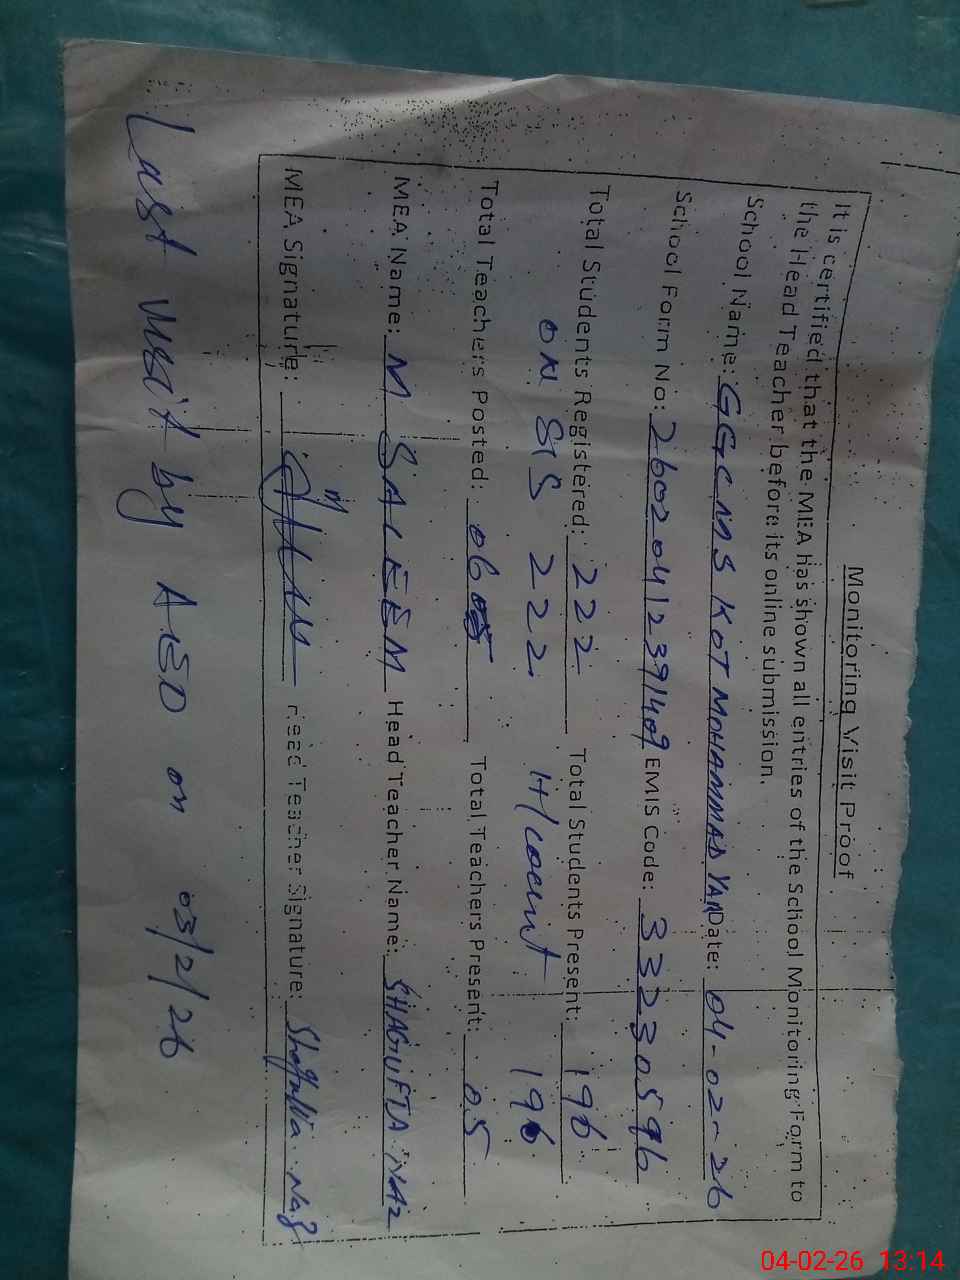 Monitoring Visit Proof
It is certified that the MEA has shown all entries of the School Monitoring Form to
the Head Teacher before its online submission.
School Name: GGCMS KOT MOHAMMAD YAR Date: 04-02-26
School Form No: 26020412391409 EMIS Code: 33230596
Total Students Registered: 222 Total Students Present: 196
ON SIS 222. H/count 196
Total Teachers Posted: 06 Total Teachers Present: 05
MEA Name: M SALEEM Head Teacher Name: SHAGUFTA NAZ
MEA Signature: Head Teacher Signature: Shagufta Naz
Last visit by AEO on 03/2/26
04-02-26 13:14